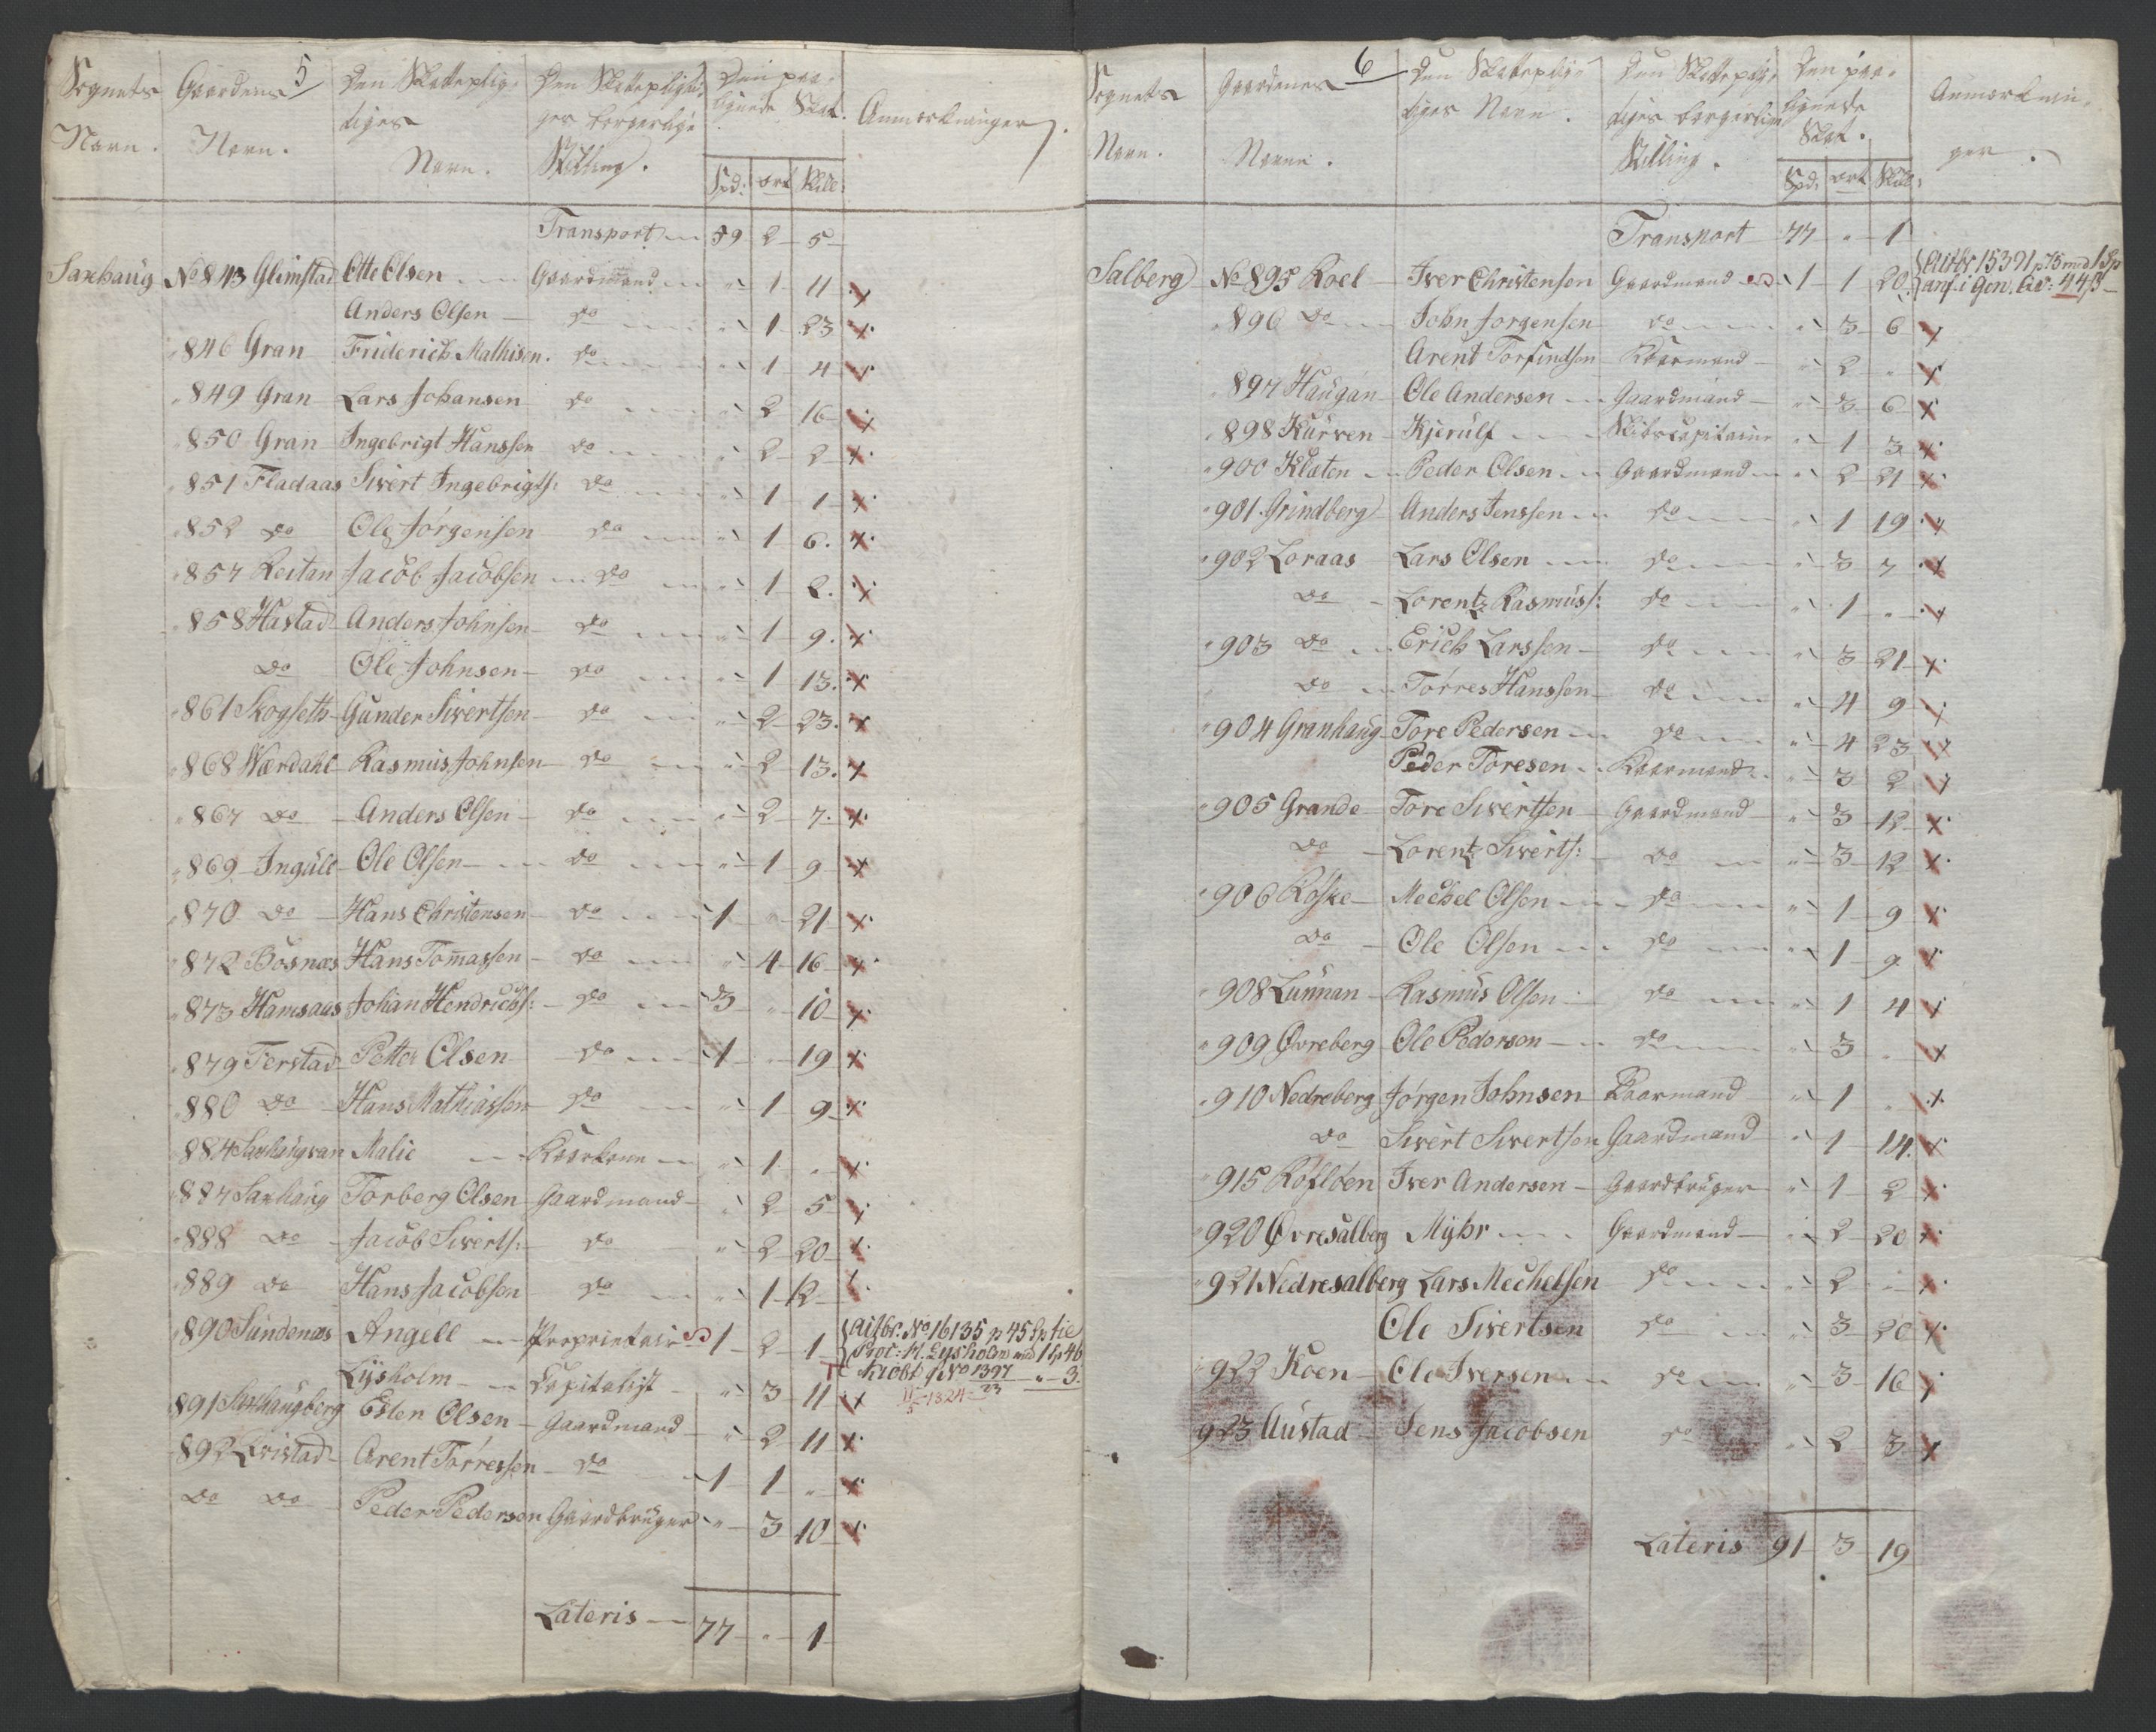 5
Sognets Navn. Gaardens Navn. Den Skatteplig- tiges Navn. Den Skattepligti- ges borgerlige Stilling. Den paa- lignede Skat. Anmærkninger.
Spd: ort Skill:
Transport 59 2 5
Saxhaug No 843 Glimstad Otte Olsen Gaardmand " 1 11 x
Anders Olsen do " 1 23 x
" 846 Gran Friderich Mathisen. do " 1 4 x
" 849 Gran Lars Johansen do " 2 16 x
" 850 Gran Ingebrigt Hanssen do " 2 2 x
" 851 Fladaas Sivert Ingebrigts: do " 1 1 x
" 852 do Ole Jørgensen do " 1 6. x
" 857 Reitan Jacob Jacobsen do " 1 2. x
" 858 Hastad Anders Johnsen do " 1 9. x
do Ole Johnsen do " 1 13. x
" 861 Skogseth Gunder Sivertsen do " 2 23. x
" 868 Wærdahl Rasmus Johnsen do " 2 13. x
" 867 do Anders Olsen do " 2 7. x
" 869 Ingull Ole Olsen do " 1 9 x
" 870 do Hans Christensen do 1 " 21 x
" 872 Bosnæs Hans Tomassen do " 4 16 x
" 873 Hamsaas Johan Hendrichs: do 3 " 10 x
" 879 Ferstad Petter Olsen do 1 " 19 x
" 880 do Hans Mathiassen do " 1 9 x
" 884 Saxhaugvan Malie Kaarkone " 1 " x
" 887 Saxhaug Torberg Olsen Gaardmand " 2 5 x
" 888 do Jacob Siverts: do " 2 20 x
" 889 do Hans Jacobsen do " 1 12
" 890 Sundenæs Angell Proprietair 1 2 1 Qitbr. No 16135 p 45 Sp til
Proc: N. Lysholm med 1 Sp 46
Lysholm Capitalist " 3 11 x No 1397 " 3.
1824
891 Saxhaugberg Esten Olsen Gaardmand " 2 11 x
892 Qvistad Arent Torressen do 1 1 " x
do do Peder Pedersen Gaardbruger " 3 10 x
Lateris 77 " 1
6
Sognets Navn. Gaardenes Navne. Den Skatteplig- tiges Navn. Den Skattepligt- tiges borgerlige Stilling. Den paa- lignede Skat. Anmærknin- ger.
Spd: ort Skill:
Transport 77 " 1
Salberg No 895 Roel Iver Christensen Gaardmand 1 1 20 Qitbr 15391 p 75 med 1 Sp
anf i Gen. Qv: 44 ß
" 896 do John Jorgensen do " 3 6 x
Arent Torfindsen Kaarmand " 2 " x
" 897 Haugan Ole Andersen Gaardmand " 3 6 x
" 898 Kurven Kjerulf Skibscapitain " 1 3 x
" 900 Klæten Peder Olsen Gaardmand " 2 21 x
" 901. Grindberg Anders Jenssen do " 1 19 x
" 902 Loraas Lars Olsen do " 3 7 x
do Lorentz Rasmus: do " 1 " x
" 903 do Erich Larssen do " 3 21 x
do Torres Hanssen do " 4 9 x
" 904 Granhaug Tore Pedersen do " 4 23 x
Peder Toresen Kaarmand " 3 2 x
" 905 Grande Tore Sivertsen Gaardmand " 3 12 x
do Lorentz Siverts: do " 3 12 x
" 906 Røske Mechel Olsen do " 1 9 x
do Ole Olsen do " 1 9. x
" 908 Lunnan Rasmus Olsen do " 1 4 x
" 909 Øvreberg Ole Pederson do " 3 " x
" 910 Nedreberg Jørgen Johnsen Kaarmand " 1 " x
do Sivert Sivertsen Gaardmand " 1 14. x
" 915 Rofløen Iver Andersen Gaardbruger " 1 2 x
" 920 Øvresalberg Myhr Gaardmand " 2 20 x
" 921 Nedresalberg Lars Mechelsen do " 2 " x
Ole Sivertsen do " 3 20 x
" 922 Koen Ole Iversen do " 3 16 x
923 Austad Jens Jacobsen do " 2 3 x
Lateris 91 3 19